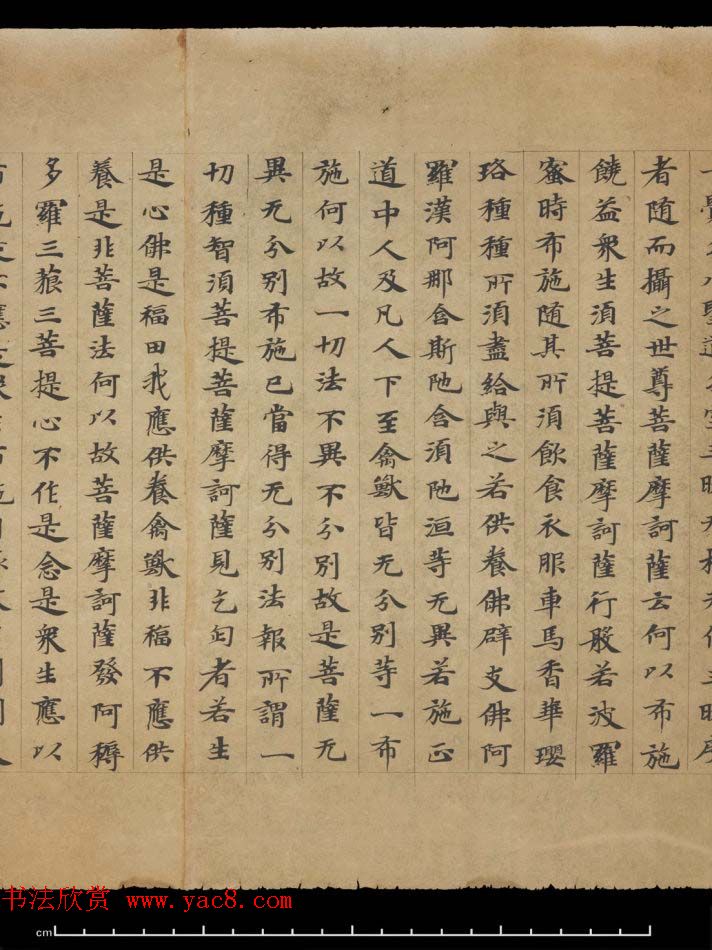 者随而攝之世尊菩薩摩訶薩云何以布施
饒益衆生須菩提菩薩摩訶薩行般若波羅
蜜時布施随其所須飲食衣服車馬香華瓔
珞種種所須盡給與之若供養佛辟支佛阿
羅漢阿那含斯陁含須陁洹等无異若施正
道中人及凡人下至禽獸皆无分別等一布
施何以故一切法不異不分別故是菩薩无
異无分別布施已當得无分別法報所謂一
切種智須菩提菩薩摩訶薩見乞匃者若生
是心佛是福田我應供養禽獸非福不應供
養是非菩薩法何以故菩薩摩訶薩發阿耨
多羅三藐三菩提心不作是念是衆生應以
书法欣赏 www.yac8.com
cm